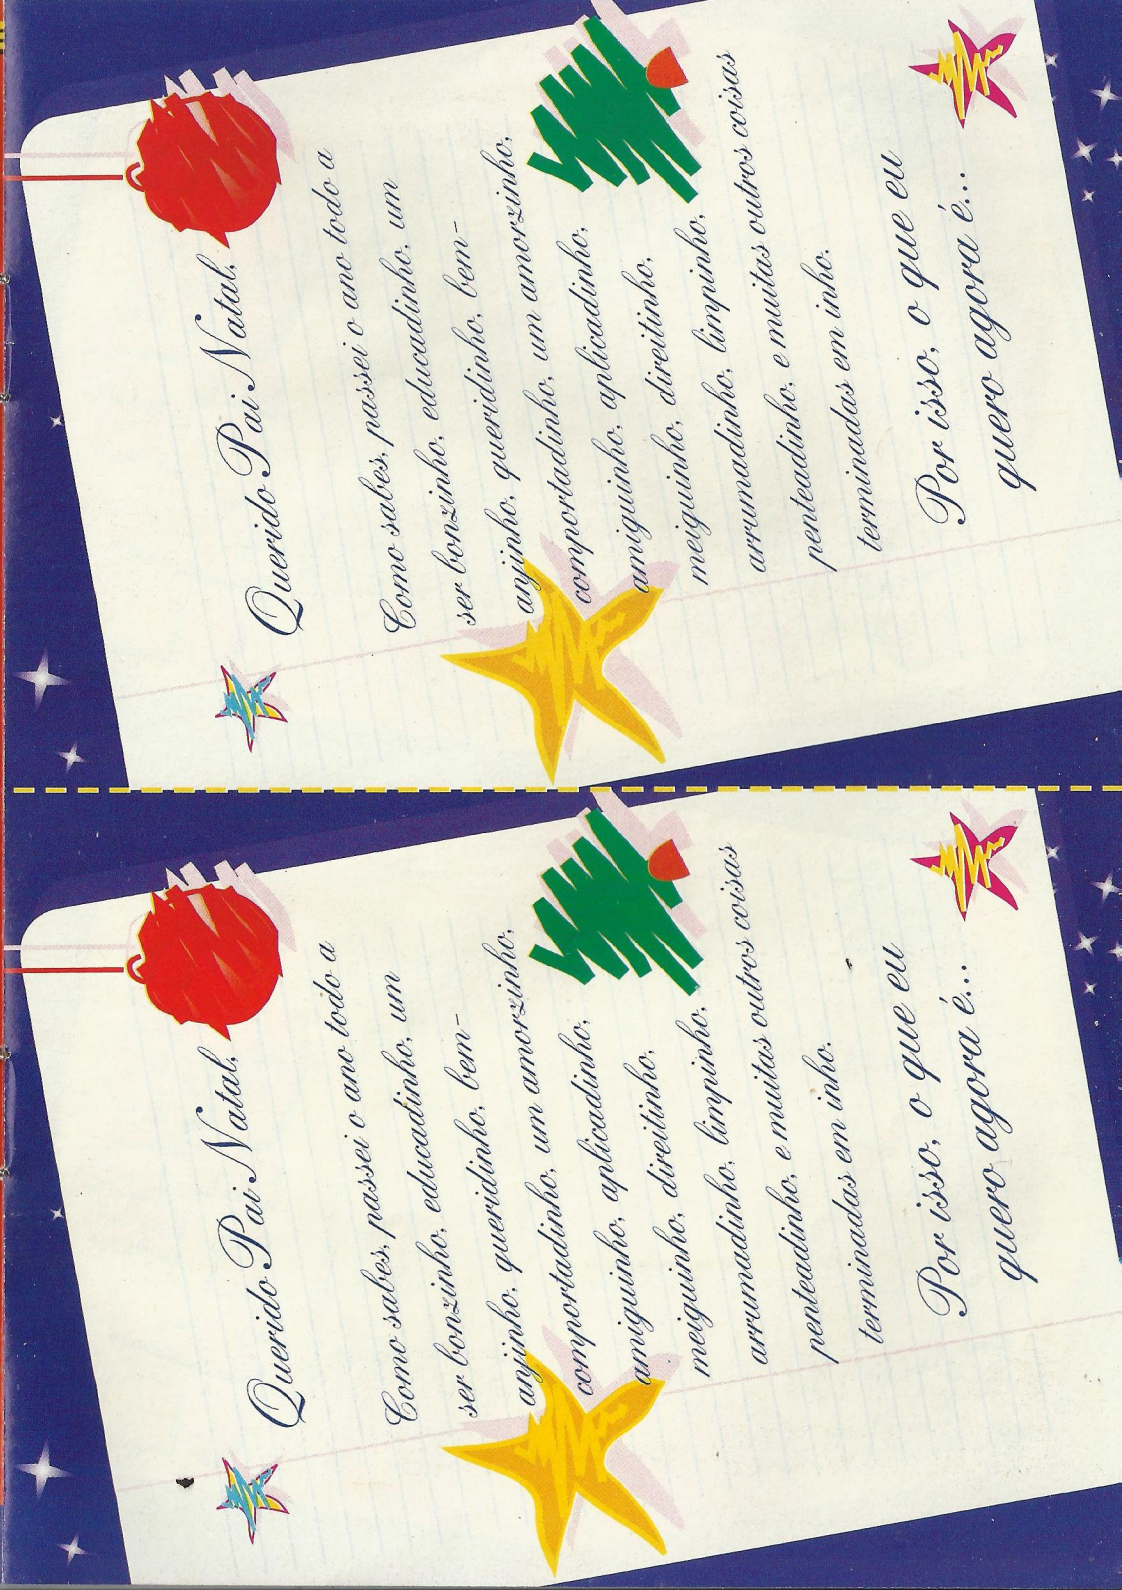 Querido Pai Natal,
Como sabes, passei o ano todo a
ser bonzinho, educadinho, um
anjinho, queridinho, bem-
comportadinho, um amorzinho,
amiguinho, aplicadinho,
meiguinho, direitinho,
arrumadinho, limpinho,
penteadinho, e muitas outros coisas
terminadas em inho.
Por isso, o que eu
quero agora é...
Querido Pai Natal,
Como sabes, passei o ano todo a
ser bonzinho, educadinho, um
anjinho, queridinho, bem-
comportadinho, um amorzinho,
amiguinho, aplicadinho,
meiguinho, direitinho,
arrumadinho, limpinho,
penteadinho, e muitas outros coisas
terminadas em inho.
Por isso, o que eu
quero agora é...